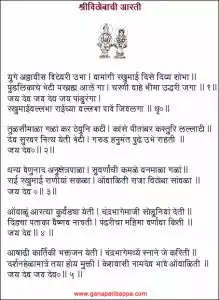 श्रीविठोबाची आरती
युगे अठ्ठावीस विटेवरी उभा । वामांगी रखुमाई दिसे दिव्य शोभा ॥
पुंडलिकाचे भेटी परब्रह्म आलें गा । चरणी वाहे भीमा उद्धरी जगा ॥ १ ॥
जय देव जय देव जय पांडुरंगा ।
रखुमाईवल्लभा राईच्या वल्लभा पावें जिवलगा ॥ धृ० ॥
तुळसीमाळा गळां कर ठेवुनि कटी । कांसे पीतांबर कस्तुरि लल्लाटी ॥
देव सुरवर नित्य येती भेटी । गरुड हनुमंत पुढे उभे राहती ॥
जय देव० ॥ २ ॥
धन्य वेणुनाद अनुक्षेत्रपाळा । सुवर्णाची कमळे वनमाळा गळां ॥
राई रखुमाई राणीया सकळा । ओंवाळिती राजा विठोबा सांवळा ॥
जय देव० ॥ ३ ॥
ओंवाळू आरत्या कुर्वंड्या येती । चंद्रभागेमाजी सोडुनियां देती ॥
दिंड्या पताका वैष्णव नाचती । पंढरीचा महिमा वर्णावा किती ॥
जय देव ॥ ४ ॥
आषाढी कार्तिकी भक्तजन येती । चंद्रभागेमध्ये स्नाने करिती ॥
दर्शनहेळामात्रे तयां होय मुक्ती । केशवासी नामदेव भावे ओंवाळिती ॥
जय देव जय देव० ॥ ५ ॥
www.ganapatibappa.com